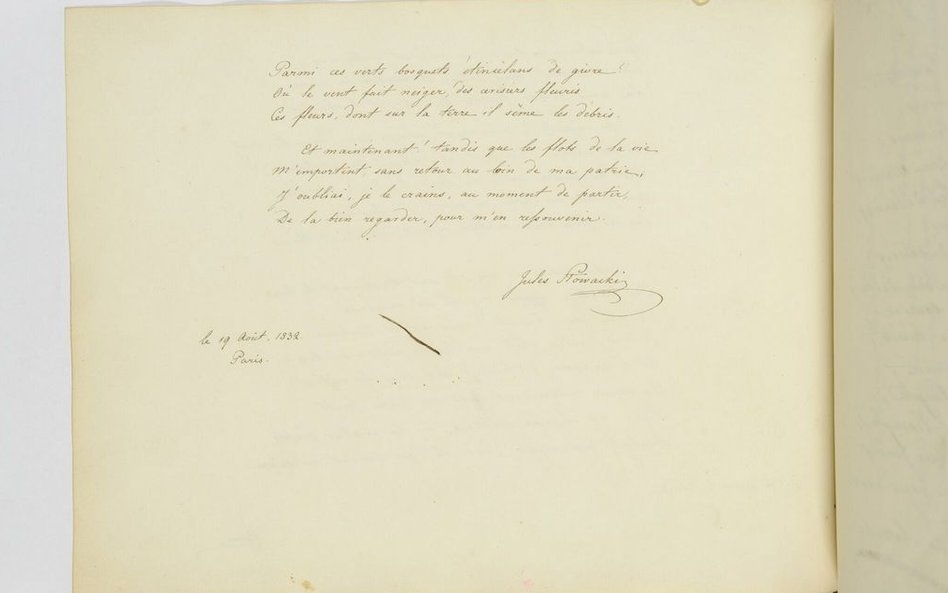 Parmi ces verts bosquets étincelans de givre!
Où le vent fait neiger, des cerisiers fleuris
Ces fleurs, dont sur la terre il sème les débris.
Et maintenant! tandis que les flots de la vie
M'emportent, sans retour au loin de ma patrie,
J'oubliai, je le crains, au moment de partir,
De la bien regarder, pour m'en ressouvenir.
Jules Słowacki
le 19 Août. 1832
Paris.